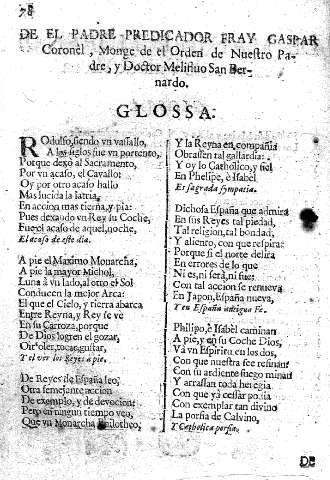 78
DE EL PADRE PREDICADOR FRAY GASPAR
Coronel, Monge de el Orden de Nuestro Pa-
dre, y Doctor Melifluo San Ber-
nardo.
GLOSSA.
Rodulfo, siendo vn vassallo,
A los siglos fue vn portento,
Porque dexò al Sacramento,
Por vn acaso, el Cavallo:
Oy por otro acaso hallo
Mas lucida la latria,
En accion mas tierna, y pia:
Pues dexando vn Rey su Coche,
Fue el acaso de aquel, noche,
El acaso de este dia.
A pie el Maximo Monarcha,
A pie la mayor Michol,
Luna à vn lado, al otro el Sol
Conducen la mejor Arca:
El que el Cielo, y tierra abarca
Entre Reyna, y Rey se vè
En su Carroza, porque
De Dios logren el gozar,
Oir, oler, tocar, gustar,
Y el ver los Reyes à pie.
De Reyes de España leo,
Otra semejante accion
De exemplo, y de devocion:
Pero en ningun tiempo veo,
Que vn Monarcha Philotheo,
Y la Reyna en compañia
Obrassen tal gallardia:
Y oy lo Catholico, y fiel
En Phelipe, è Isabel
Es sagrada sympatia.
Dichosa España que admira
En sus Reyes tal piedad,
Tal religion, tal bondad,
Y aliento, con que respira:
Porque si el norte delira
En errores de lo que
Ni es, ni serà, ni fue:
Con tal accion se renueva
En Japon, España nueva,
Y en España antigua Fe.
Philipo, è Isabel caminan
A pie, y en su Coche Dios,
Và vn Espiritu en los dos,
Con que nuestra fee refinan:
Con su ardiente fuego minan
Y arrasan toda heregia
Con que yà cessar podia
Con exemplar tan divino
La porfia de Calvino,
Y Catholica porfia.
DE